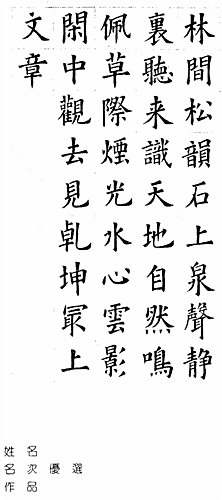 林間松韻石上泉聲静
裏聽来識天地自然鳴
佩草際煙光水心雲影
閑中觀去見乹坤冣上
文章
姓名
名次優選
作品